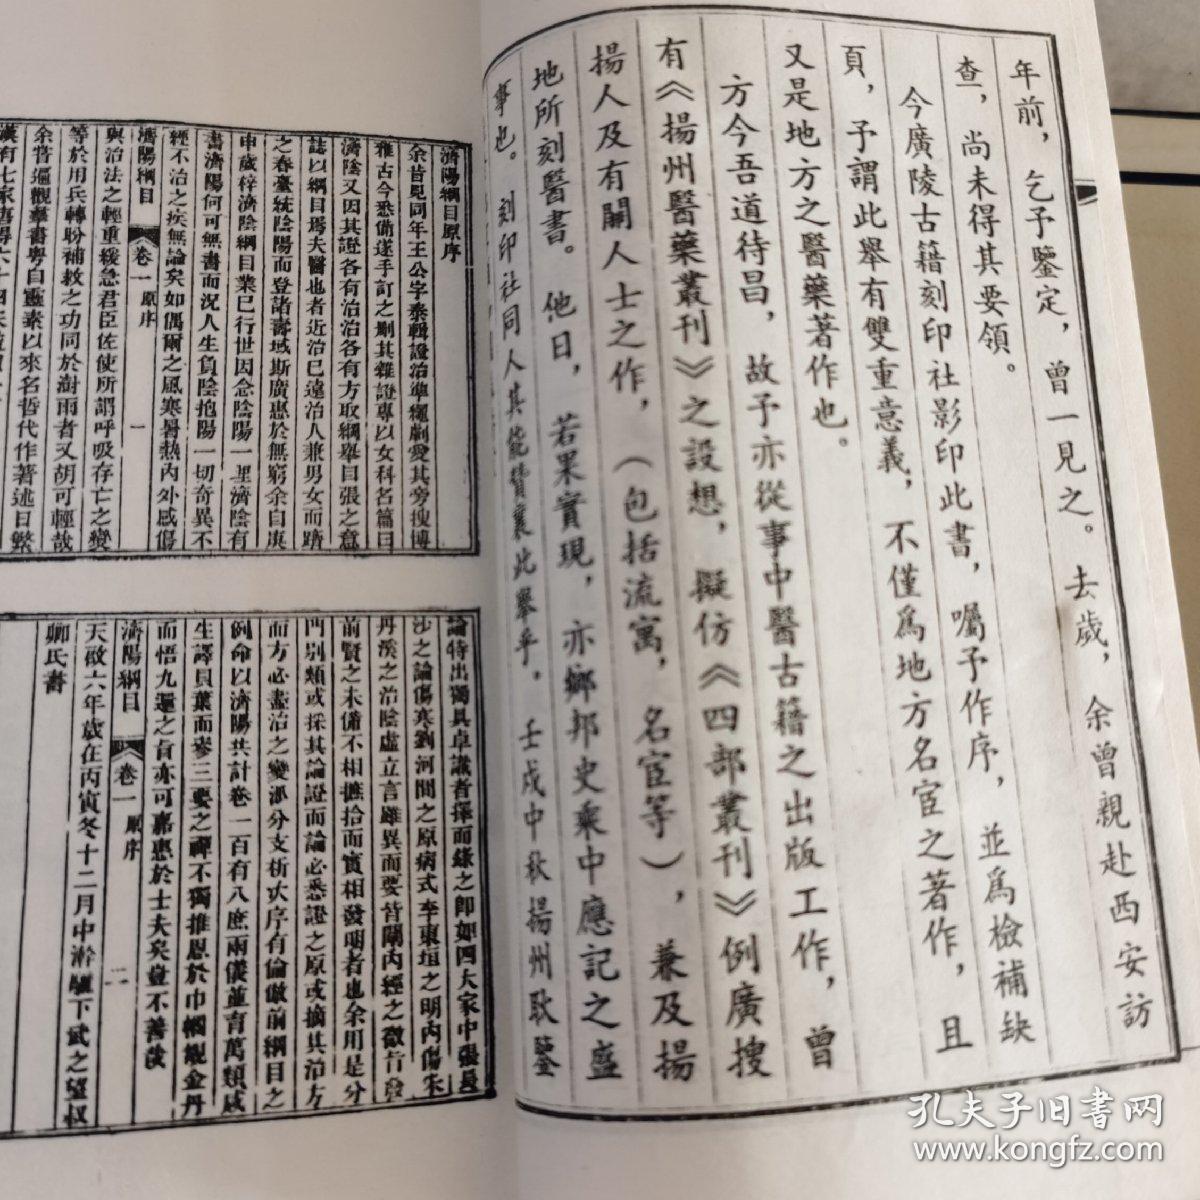 年前，乞予鑒定，曾一見之。去歲，余曾親赴西安訪
查，尚未得其要領。
今廣陵古籍刻印社影印此書，囑予作序，並爲檢補缺
頁，予謂此舉有雙重意義，不僅爲地方名宦之著作，且
又是地方之醫藥著作也。
方今吾道待昌，故予亦從事中醫古籍之出版工作，曾
有《揚州醫藥叢刊》之設想，擬仿《四部叢刊》例廣搜
揚人及有關人士之作，（包括流寓，名宦等），兼及揚
地所刻醫書。他日，若果實現，亦鄉邦史乘中應記之盛
事也。刻印社同人其能贊襄此舉乎，壬戌中秋揚州耿鑒
濟陽綱目原序
余昔見同年王公字泰輯證治準繩劇愛其旁搜博
雅古今悉備遂手訂之刪其雜證專以女科名篇曰
濟陰又因其證各有治治各有方取綱舉目張之意
誌以綱目焉夫醫也者近治已遠治人兼男女而躋
之春臺統陰陽而登諸壽域斯廣惠於無窮余自庚
申歲梓濟陰綱目業已行世因念陰陽一里濟陰有
書濟陽何可無書而況人生負陰抱陽一切奇異不
經不治之疾無論矣如偶爾之風寒暑熱內外感傷
濟陽綱目 卷一 原序 一
與治法之輕重緩急君臣佐使所謂呼吸存亡之變
等於用兵轉盼補救之功同於澍雨者又胡可輕哉
余昔遍觀羣書粵自靈素以來名哲代作著述日繁
論特出獨具卓識者擇而錄之即如四大家中張長
沙之論傷寒劉河間之原病式李東垣之明內傷朱
丹溪之治陰虛立言雖異而要皆闡內經之微言發
前賢之未備不相摭拾而實相發明者也余用是分
門別類或採其論證而論必悉證之原或摘其治方
而方必盡治之變部分支析次序有倫倣前綱目之
例命以濟陽共計卷一百有八庶兩儀並育萬類咸
生譯貝葉而參三要之禪不獨推恩於巾幗觀金丹
而悟九還之旨亦可嘉惠於士夫矣豈不善哉
濟陽綱目 卷一 原序 二
天啟六年歲在丙寅冬十二月中澣驪下武之望叔
卿氏書
孔夫子旧书网
www.kongfz.com